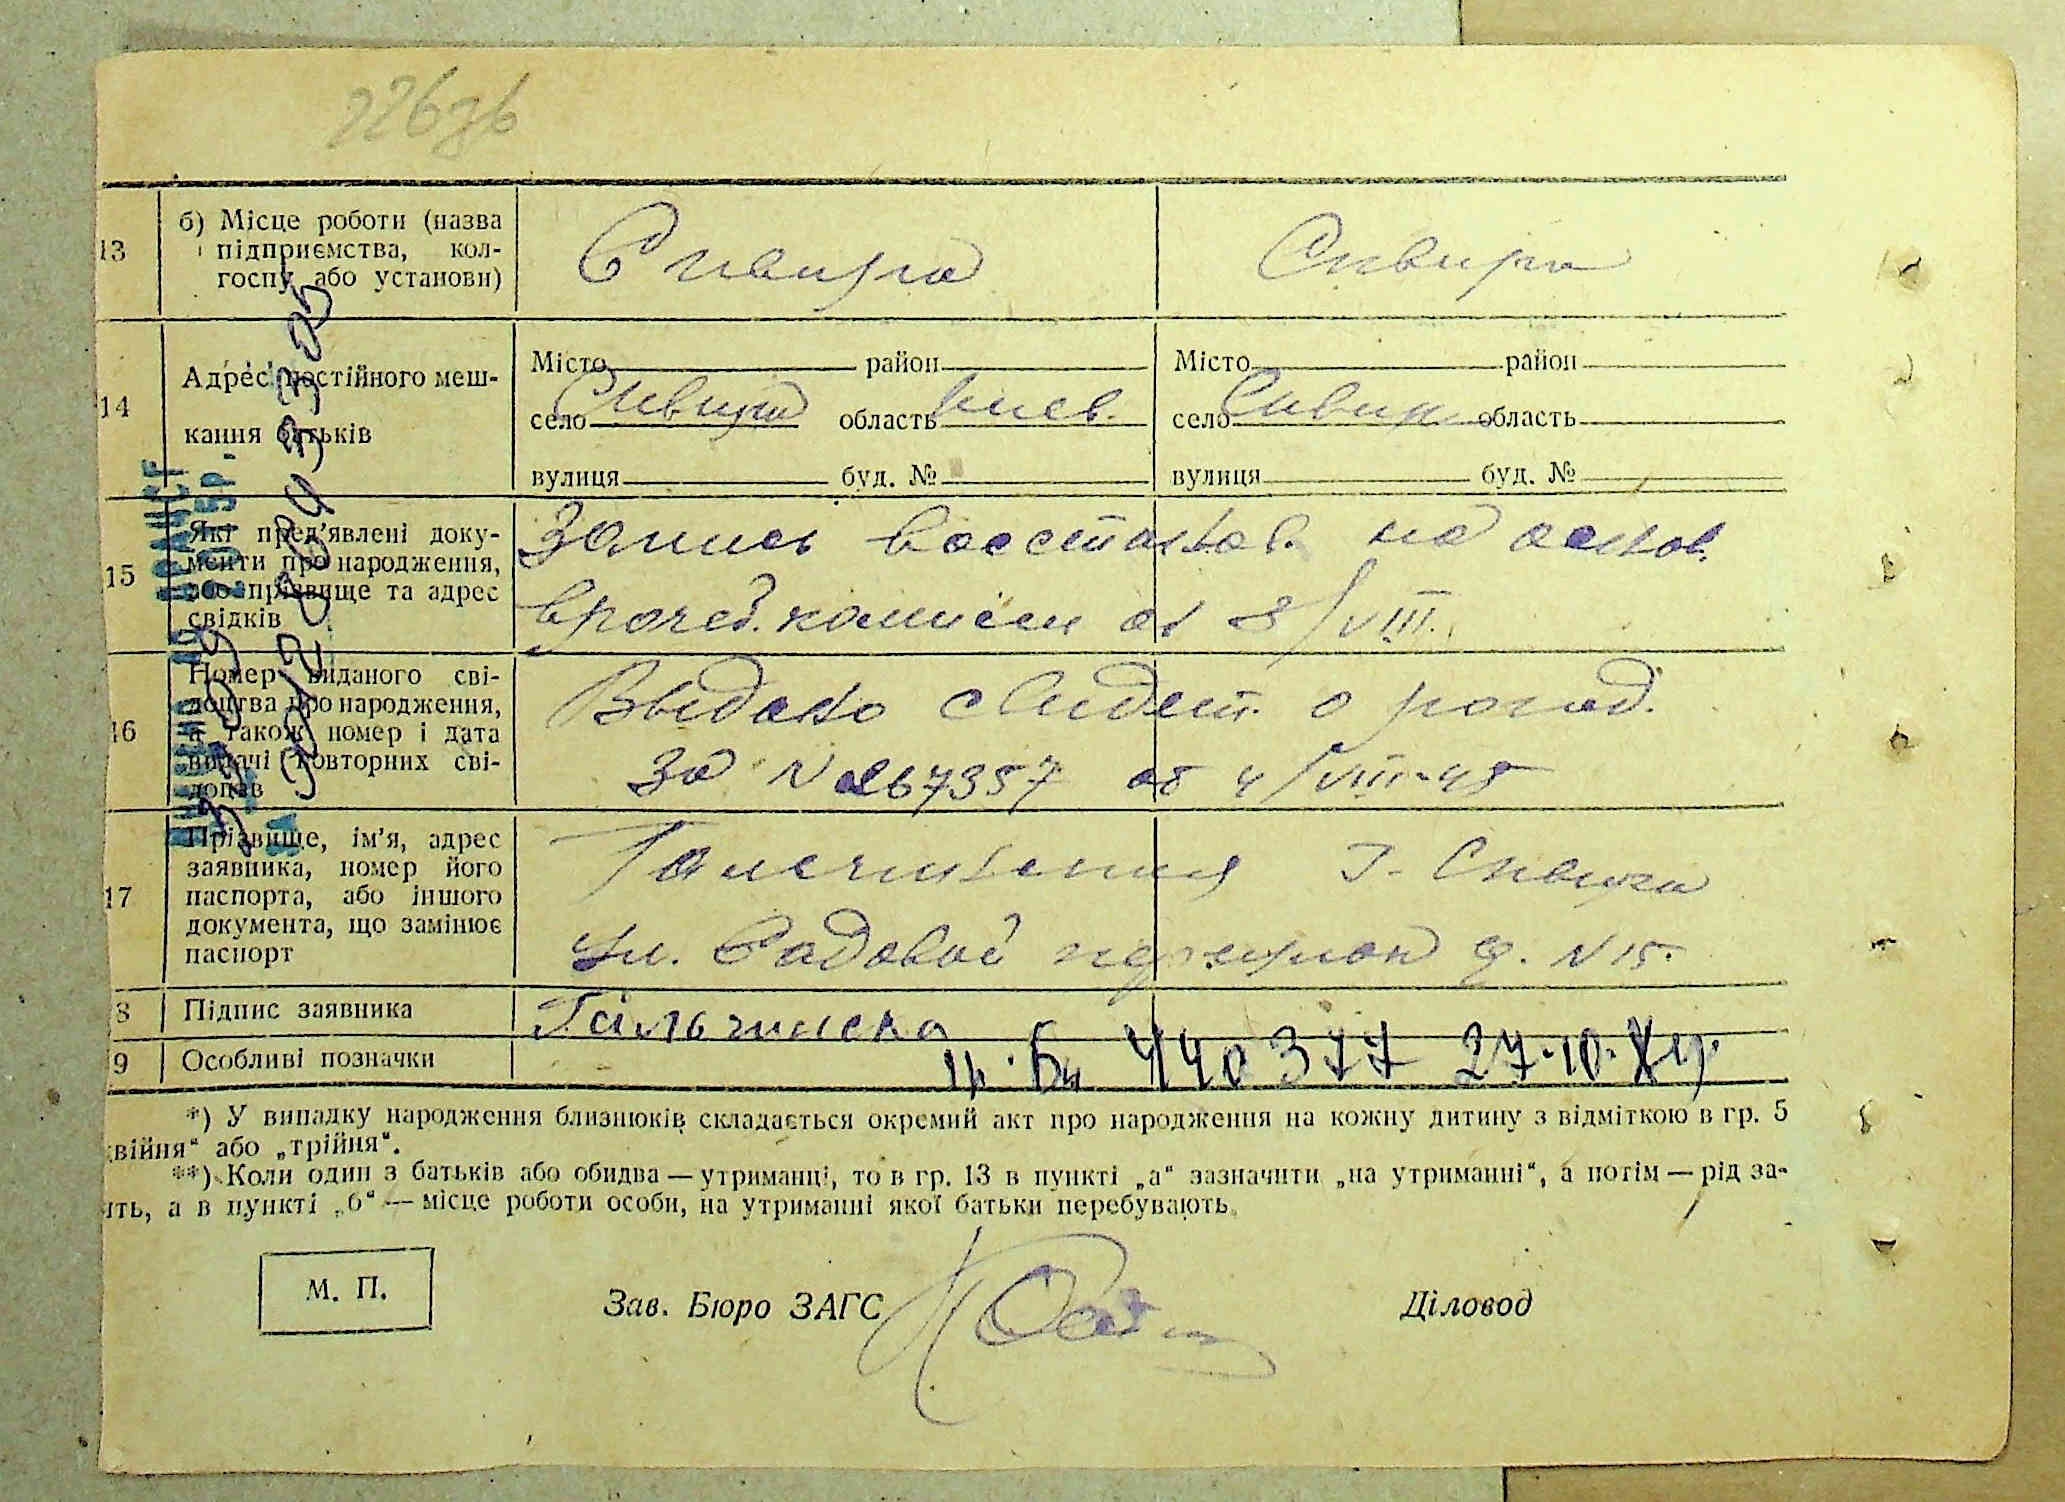 13 б) Місце роботи (назва підприємства, колгоспу або установи) Сквира Сквира
14 Адрес постійного мешкання батьків
Місто район Місто район
село Сквира область Киев. село Сквира область
вулиця буд. № вулиця буд. №
15 Які пред'явлені документи про народження, або прізвище та адрес свідків
Запись восстанов. на основ.
врачеб. комисии от 8/VIII.
16 Номер виданого свідоцтва про народження, а також номер і дата видачі повторних свідоцтв
Выдано свидет. о рожд.
за N 267357 от 4/VIII-48
17 Прізвище, ім'я, адрес заявника, номер його паспорта, або іншого документа, що замінює паспорт
г. Сквира
ул. Садовой д. N 15.
18 Підпис заявника Гальчинська
19 Особливі позначки 440377 27.10.
*) У випадку народження близнюків складається окремий акт про народження на кожну дитину з відміткою в гр. 5
війня“ або „трійня“.
**) Коли один з батьків або обидва — утриманці, то в гр. 13 в пункті „а“ зазначити „на утриманні“, а потім — рід за-
ять, а в пункті „б“ — місце роботи особи, на утриманні якої батьки перебувають.
М. П. Зав. Бюро ЗАГС Діловод